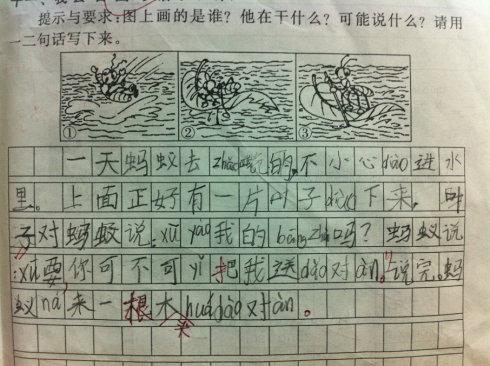 提示与要求:图上画的是谁?他在干什么?可能说什么?请用
一二句话写下来。
① ② ③
一天蚂蚁去 的,不小心dào进水
里。上面正好有一片叶子diào下来,叶
子对蚂蚁说:xū yào我的bāng zhù吗?蚂蚁说
:xū要,你可不可yǐ把我送dào对àn。"说完,蚂
蚁ná来一根木 huá dào对àn。
来